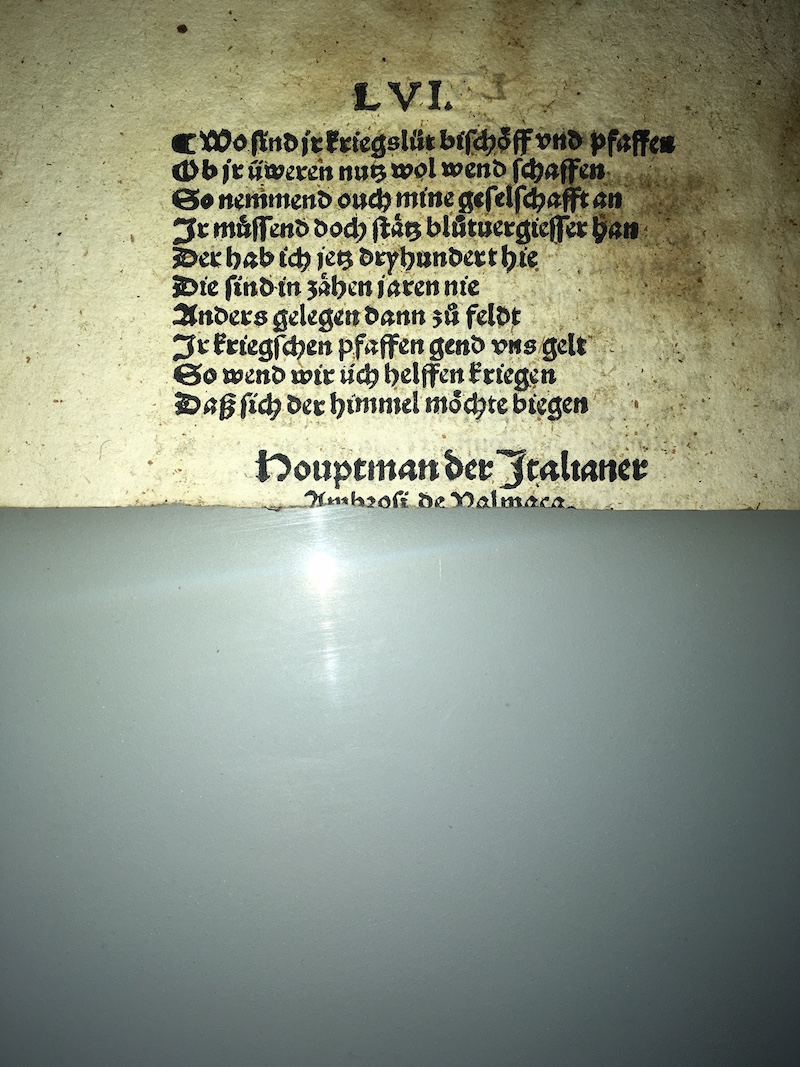 LVI.
¶ Wo sind jr kriegslüt bischöff vnd pfaffen
Ob jr üweren nutz wol wend schaffen
So nemmend ouch mine geselschafft an
Jr müssend doch stätz blůtuergiesser han
Der hab ich jetz dryhundert hie
Die sind in zähen jaren nie
Anders gelegen dann zů feldt
Jr kriegschen pfaffen gend vns gelt
So wend wir üch helffen kriegen
Daß sich der himmel möchte biegen
Houptman der Italianer
Ambrosi de Valmaca.